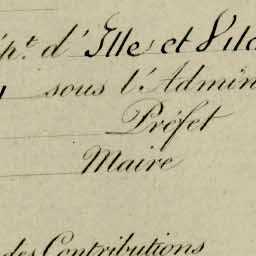 dépt. d'Ille et Vila
sous l'Admin
Préfet
Maire
des Contributions